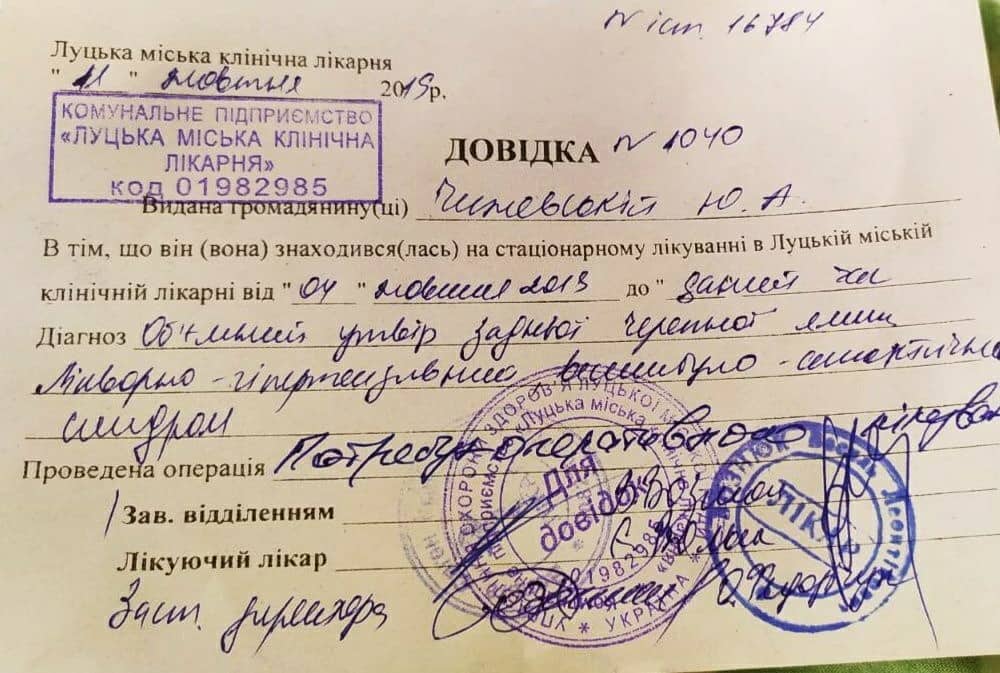 N іст. 16784
Луцька міська клінічна лікарня
" 11 " жовтня 2019р.
КОМУНАЛЬНЕ ПІДПРИЄМСТВО
«ЛУЦЬКА МІСЬКА КЛІНІЧНА
ЛІКАРНЯ»
код 01982985
ДОВІДКА N 1040
Видана громадянину(ці) Ю. А.
В тім, що він (вона) знаходився(лась) на стаціонарному лікуванні в Луцькій міській
клінічній лікарні від " 04 " жовтня 2019 до "
Діагноз Об'ємний утвір задньої черепної ямки
Лікворно-гіпертензивний
синдром
Проведена операція Потребує оперативного
Зав. відділенням
Лікуючий лікар
Заст. директора
Для
довідок
01982985
УКРАЇНА
ЛІКАР